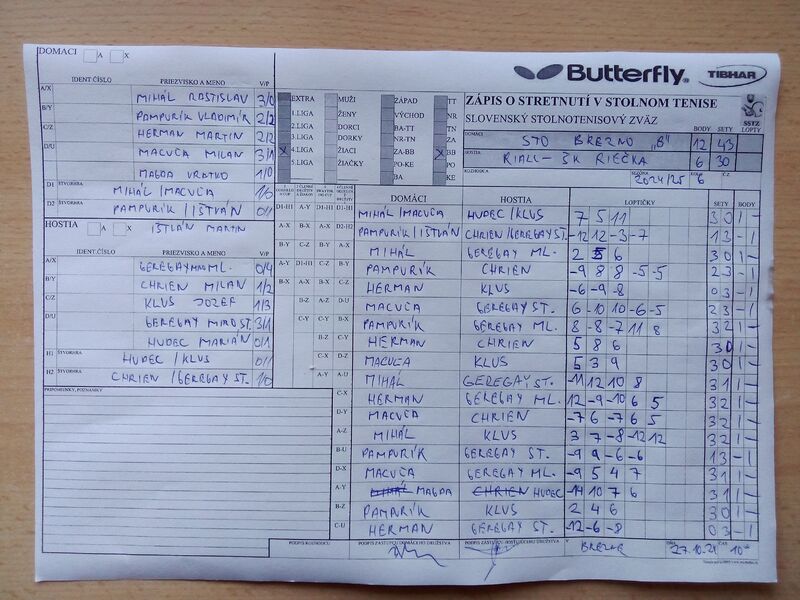 DOMACI A X
IDENT ČÍSLO PRIEZVISKO A MENO V/P
A/X MIHÁL RASTISLAV 3/0
B/Y PAMPURÍK VLADIMÍR 2/2
C/Z HERMAN MARTIN 2/2
D/U MACUĽA MILAN 3/1
MAGDA VRATKO 1/0
D1 ŠTVORHRA MIHÁL /MACUĽA 1/0
D2 ŠTVORHRA PAMPURÍK /IŠTVÁN 0/1
HOSTIA A X IŠTVAN MARTIN
IDENT. ČÍSLO PRIEZVISKO A MENO V/P
A/X GEREGAY ML. 0/4
B/Y CHRIEN MILAN 1/2
C/Z KLUS JOZEF 1/3
D/U GEREGAY MIRO ST. 3/1
HUDEC MARIÁN 0/1
H1 ŠTVORHRA HUDEC /KLUS 0/1
H2 ŠTVORHRA CHRIEN /GEREGAY ST. 1/0
PRIPOMIENKY, POZNÁMKY
Butterfly TIBHAR
EXTRA MUŽI ZÁPAD TT
1.LIGA ŽENY VÝCHOD NR
2.LIGA DORCI BA-TT TN
3.LIGA DORKY NR-TN ZA
X 4.LIGA ŽIACI ZA-BB X BB
5.LIGA ŽIAČKY PO-KE PO
BA KE
ZÁPIS O STRETNUTÍ V STOLNOM TENISE
SLOVENSKÝ STOLNOTENISOVÝ ZVÄZ SSTZ
DOMÁCI BODY SETY LOPTY
STO BREZNO "B" 12 43
HOSTIA RIALL - ŠK RIEČKA 6 30
ROZHODCA SEZÓNA 2024/25 KOLO 6 ČZ
DOMÁCI HOSTIA LOPTIČKY SETY BODY
D1-H1 A-Y D1-H1 D1-H1 MIHÁL /MACUĽA HUDEC /KLUS 7 5 11 3 0 1 -
A-X B-X A-X D2-H2 PAMPURÍK /IŠTVÁN CHRIEN /GEREGAY ST. -12 12 -3 -7 1 3 - 1
B-Y C-Z B-Y A-X MIHÁL GEREGAY ML. 2 5 6 3 0 1 -
A-Y D1-H1 C-Z B-Y PAMPURÍK CHRIEN -9 8 8 -5 -5 2 3 - 1
B-X A-X B-X C-Z HERMAN KLUS -6 -9 -8 0 3 - 1
B-Z A-Z D-U MACUĽA GEREGAY ST. 6 -10 10 -6 -5 2 3 - 1
C-Y C-Y B-X PAMPURÍK GEREGAY ML. 8 -8 -7 11 8 3 2 1 -
B-Z C-Y HERMAN CHRIEN 5 8 6 3 0 1 -
C-X D-Z MACUĽA KLUS 5 3 9 3 0 1 -
A-Y A-U MIHÁL GEREGAY ST. -11 12 10 8 3 1 1 -
C-X HERMAN GEREGAY ML. 12 -9 -10 6 5 3 2 1 -
D-Y MACUĽA CHRIEN -7 6 -7 6 5 3 2 1 -
A-Z MIHÁL KLUS 3 7 -8 -12 12 3 2 1 -
B-U PAMPURÍK GEREGAY ST. -9 9 -6 -6 1 3 - 1
D-X MACUĽA GEREGAY ML. -9 5 4 7 3 1 1 -
A-Y MIHÁL MAGDA CHRIEN HUDEC -14 10 7 6 3 1 1 -
B-Z PAMPURÍK KLUS 2 4 6 3 0 1 -
C-U HERMAN GEREGAY ST. -12 -6 -8 0 3 - 1
PODPIS ROZHODCU PODPIS ZÁSTUPCU DOMÁCEHO DRUŽSTVA PODPIS ZÁSTUPCU HOSŤUJÚCEHO DRUŽSTVA V BREZNE DŇA 27.10.24 ČAS 10